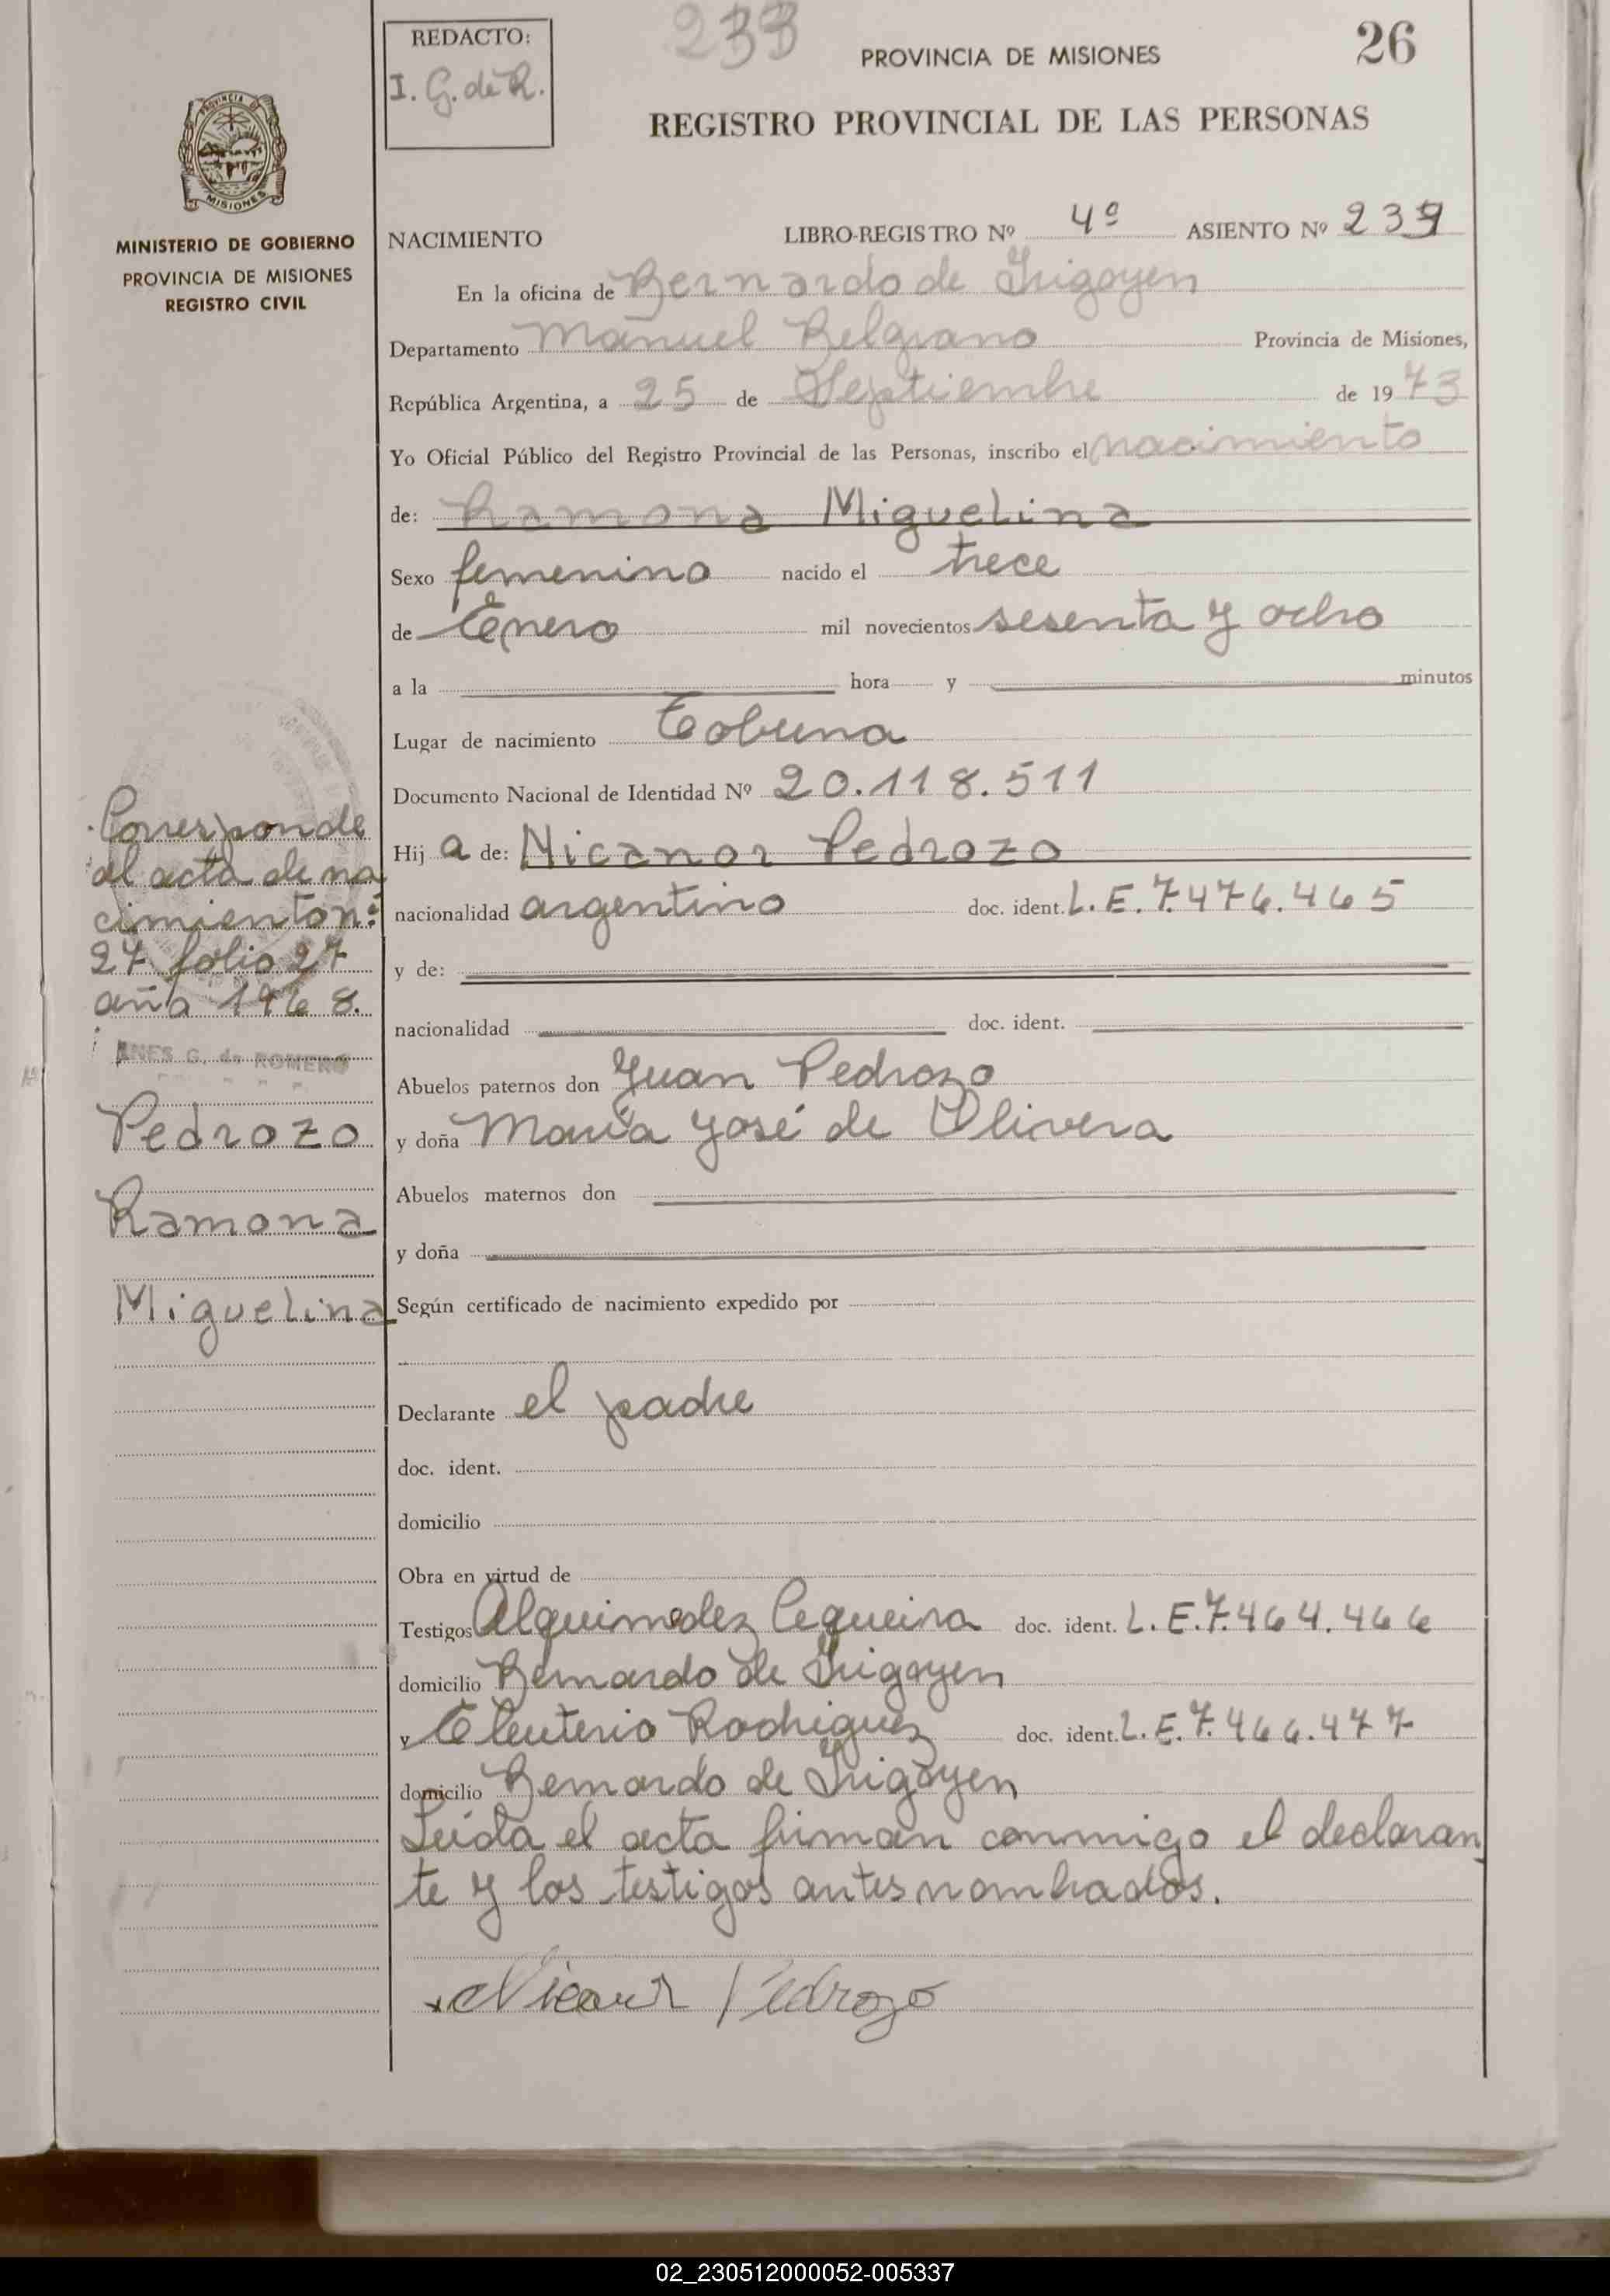 REDACTO:
I. G. de R.
233
PROVINCIA DE MISIONES
26
REGISTRO PROVINCIAL DE LAS PERSONAS
PROVINCIA DE
MISIONES
MINISTERIO DE GOBIERNO
PROVINCIA DE MISIONES
REGISTRO CIVIL
NACIMIENTO LIBRO-REGISTRO Nº 4º ASIENTO Nº
En la oficina de Bernardo de Irigoyen
Departamento Manuel Belgrano Provincia de Misiones,
República Argentina, a 25 de Septiembre de 1973
Yo Oficial Público del Registro Provincial de las Personas, inscribo el nacimiento
de: Ramona Miguelina
Sexo femenino nacido el trece
de Enero mil novecientos sesenta y ocho
a la hora y minutos
Lugar de nacimiento Tobuna
Documento Nacional de Identidad Nº 20.118.511
Hij a de: Nicanor Pedrozo
nacionalidad argentino doc. ident. L.E. 7.476.465
y de:
nacionalidad doc. ident.
Abuelos paternos don Juan Pedrozo
y doña María José de Olivera
Abuelos maternos don
y doña
Según certificado de nacimiento expedido por
Declarante el padre
doc. ident.
domicilio
Obra en virtud de
Testigos Alquimedez Cequeira doc. ident. L.E. 7.464.466
domicilio Bernardo de Irigoyen
y Eleuterio Rodriguez doc. ident. L.E. 7.466.477
domicilio Bernardo de Irigoyen
Leída el acta firman conmigo el declaran
te y los testigos antes nombrados.
Nicanor Pedrozo
Corresponde
al acta de na
cimiento nº
27 folio 27
año 1968.
INES G. de ROMERO
Pedrozo
Ramona
Miguelina
02_230512000052-005337